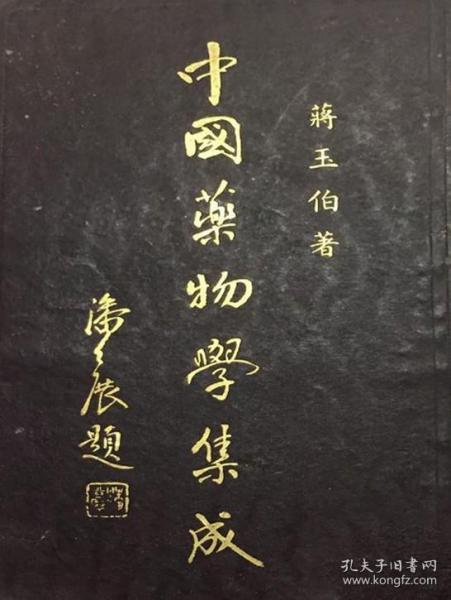 蔣玉伯著
中國藥物學集成
潘公展題
孔夫子旧书网
www.kongfz.com